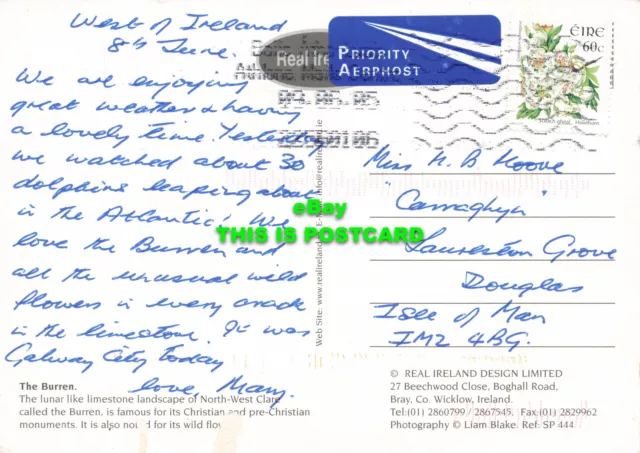 West of Ireland
8th June.
We are enjoying
great weather & having
a lovely time. Yesterday
we watched about 30
dolphins leaping about
in the Atlantic! We
love the Burren and
all the unusual wild
flowers in every crack
in the limestone. It was
Galway City today
love, Mary.
The Burren.
The lunar like limestone landscape of North-West Clare
called the Burren, is famous for its Christian and pre-Christian
monuments. It is also no d for its wild flow
Web Site: www.realireland.ie
Real Ire
PRIORITY
AERPHOST
ÉIRE
60c
Miss H. B. Moore
"Carraghyn"
Laureston Grove
Douglas
Isle of Man
IM2 4BG.
© REAL IRELAND DESIGN LIMITED
27 Beechwood Close, Boghall Road,
Bray, Co. Wicklow, Ireland.
Tel:(01) 2860799 / 2867545. Fax:(01) 2829962
Photography © Liam Blake. Ref: SP 444
eBay
THIS IS POSTCARD